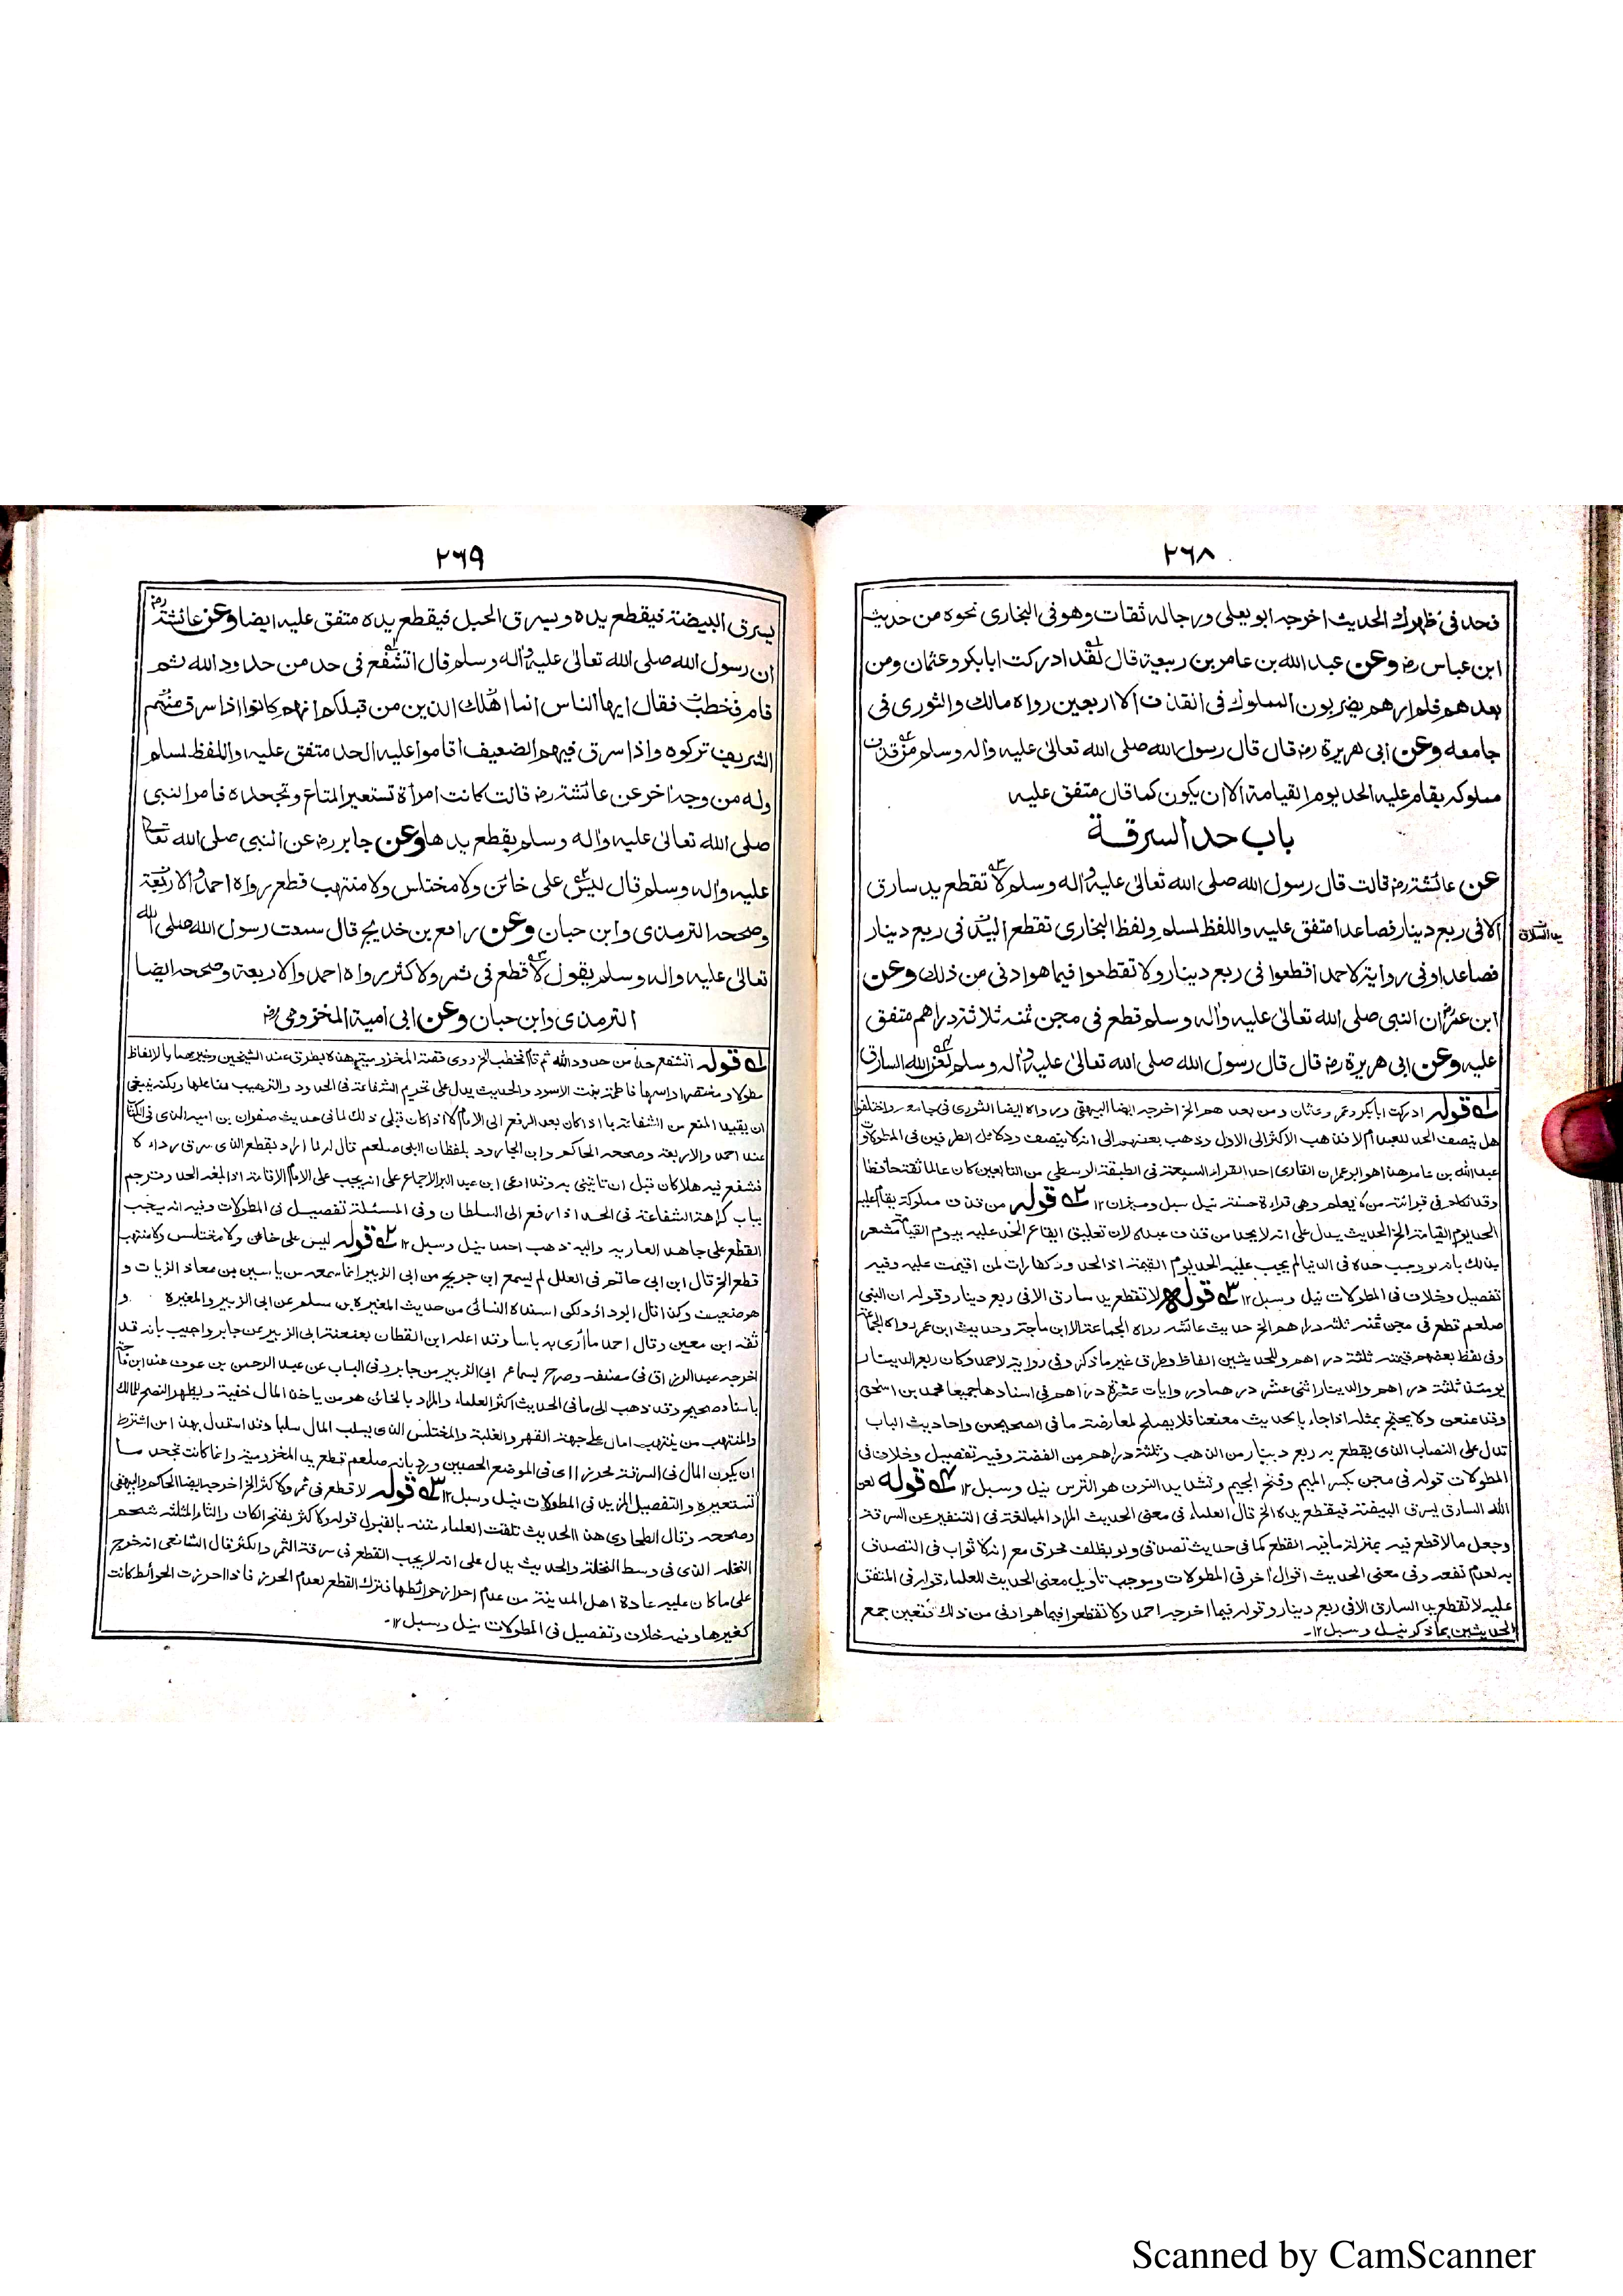 ٢٦٨
فحد فى ظهرك الحديث اخرجه ابو يعلى ورجاله ثقات وهو فى البخارى نحوه من حديث
ابن عباس رض وعن عبد الله بن عامر بن ربيعة قال لقد ادركت ابا بكر وعثمان ومن
بعدهم فلم ارهم يضربون المملوك فى القذف الا اربعين رواه مالك والثورى فى
جامعه وعن ابى هريرة رض قال قال رسول الله صلى الله تعالى عليه واله وسلم من قذف
مملوكه يقام عليه الحد يوم القيامة الا ان يكون كما قال متفق عليه
باب حد السرقة
عن عائشة رض قالت قال رسول الله صلى الله تعالى عليه واله وسلم لا تقطع يد سارق
الا فى ربع دينار فصاعدا متفق عليه واللفظ لمسلم ولفظ البخارى تقطع اليد فى ربع دينار
فصاعدا وفى رواية لاحمد اقطعوا فى ربع دينار ولا تقطعوا فيما هو ادنى من ذلك وعن
ابن عمر رض ان النبى صلى الله تعالى عليه واله وسلم قطع فى مجن ثمنه ثلاثة دراهم متفق
عليه وعن ابى هريرة رض قال قال رسول الله صلى الله تعالى عليه واله وسلم لعن الله السارق
١ قوله ادركت ابا بكر وعمر وعثمان ومن بعدهم الخ اخرجه ايضا البيهقى ورواه ايضا الثورى فى جامعه واختلفوا
هل ينصف الحد للعبد ام لا فذهب الاكثر الى الاول وذهب بعضهم الى انه لا ينصف
عبد الله بن عامر هذا هو ابو عمران القارى احد القراء السبعة فى الطبقة الوسطى من التابعين كان عالما ثقة حافظا
فى قرائته وهى قراءة حسنة نيل سبل وميزان ١٢ ٢ قوله من قذف مملوكه يقام عليه
الحد يوم القيامة الخ الحديث يدل على انه لا يحد من قذف عبده لان تعليق ايقاع الحد عليه بيوم القيامة مشعر
بذلك بانه لو وجب حده فى الدنيا لم يجب عليه الحد يوم القيمة اذ الحدود كفارات لمن اقيمت عليه وفيه
تفصيل وخلاف فى المطولات نيل وسبل ١٢ ٣ قوله لا تقطع يد سارق الا فى ربع دينار وقوله ان النبى
صلعم قطع فى مجن ثمنه ثلثة دراهم الخ حديث عائشه رواه الجماعة الا ابن ماجة وحديث ابن عمر رواه الجماعة
وفى لفظ بعضهم قيمته ثلثة دراهم وللحديثين الفاظ وطرق غير ما ذكر وفى رواية لاحمد وكان ربع الدينار
يومئذ ثلثة دراهم والدينار اثنى عشر درهما وروايات عشرة دراهم فى اسنادها جميعا محمد بن اسحق
وقد عنعن ولا يحتج بمثله اذا جاء بالحديث معنعنا فلا يصلح لمعارضة ما فى الصحيحين واحاديث الباب
تدل على النصاب الذى يقطع به ربع دينار من الذهب وثلثة دراهم من الفضة وفيه تفصيل وخلاف فى
المطولات قوله فى مجن بكسر الميم وفتح الجيم وتشديد النون هو الترس نيل وسبل ١٢ ٤ قوله لعن
الله السارق يسرق البيضة فيقطع يده الخ قال العلماء فى معنى الحديث المراد المبالغة فى التنفير عن السرقة
وجعل ما لا قطع فيه بمنزلة ما فيه القطع كما فى حديث تصدقى ولو بظلف محرق مع انه لا ثواب فى التصدق
به لعدم نفعه وفى معنى الحديث اقوال اخر فى المطولات وموجب تاويل معنى الحديث للعلماء قوله فى المتفق
عليه لا تقطع يد السارق الا فى ربع دينار وقوله فيما اخرجه احمد ولا تقطعوا فيما هو ادنى من ذلك فتعين جمع
الحديثين بما ذكر نيل وسبل ١٢
يد السارق
٢٦٩
يسرق البيضة فيقطع يده ويسرق الحبل فيقطع يده متفق عليه ايضا وعن عائشة رض
ان رسول الله صلى الله تعالى عليه واله وسلم قال اتشفع فى حد من حدود الله ثم
قام فخطب فقال ايها الناس انما اهلك الذين من قبلكم انهم كانوا اذا سرق منهم
الشريف تركوه واذا سرق فيهم الضعيف اقاموا عليه الحد متفق عليه واللفظ لمسلم
وله من وجه اخر عن عائشة رض قالت كانت امرأة تستعير المتاع وتجحده فامر النبى
صلى الله تعالى عليه واله وسلم بقطع يدها وعن جابر رض عن النبى صلى الله تعالى
عليه واله وسلم قال ليس على خائن ولا مختلس ولا منتهب قطع رواه احمد والاربعة
وصححه الترمذى وابن حبان وعن رافع بن خديج قال سمعت رسول الله صلى الله
تعالى عليه واله وسلم يقول لا قطع فى ثمر ولا كثر رواه احمد والاربعة وصححه ايضا
الترمذى وابن حبان وعن ابى امية المخزومى رض
١ قوله اتشفع حد من حدود الله ثم قام فخطب الخ روى قصة المخزومية هذه بطرق عند الشيخين وغيرهما بالالفاظ
مطولا ومختصرا واسمها فاطمة بنت الاسود والحديث يدل على تحريم الشفاعة فى الحدود والترهيب لفاعلها ولكنه ينبغى
ان يقيد المنع من الشفاعة بما اذا كان بعد الرفع الى الامام لا اذا كان قبل ذلك لما فى حديث صفوان بن امية الذى فى الكتاب
عند احمد والاربعة وصححه الحاكم وابن الجارود بلفظ ان النبى صلعم قال له لما اراد يقطع الذى سرق رداءه
فشفع فيه هلا كان قبل ان تاتينى به وقد ادعى ابن عبد البر الاجماع على انه يجب على الامام الاقامة اذا بلغه الحد وترجم
باب كراهة الشفاعة فى الحد اذا رفع الى السلطان وفى المسئلة تفصيل فى المطولات وفيه انه يجب
القطع على جاحد العارية واليه ذهب احمد نيل وسبل ١٢ ٢ قوله ليس على خائن ولا مختلس ولا منتهب
قطع الخ قال ابن ابى حاتم فى العلل لم يسمع ابن جريج من ابى الزبير انما سمعه من ياسين بن معاذ الزيات و
هو ضعيف وكذا قال ابو داؤد لكن اسنده النسائى من حديث المغيرة بن سلم عن ابى الزبير والمغيرة و
ثقه ابن معين وقال احمد ما ارى به باسا وقد اعله ابن القطان بعنعنة ابى الزبير عن جابر واجيب بانه قد
اخرجه عبد الرزاق فى مصنفه وصرح بسماع ابى الزبير من جابر وفى الباب عن عبد الرحمن بن عوف عند ابن ماجة
باسناد صحيح وقد ذهب الى ما فى الحديث اكثر العلماء والمراد بالخائن هو من ياخذ المال خفية ويظهر النصح للمالك
والمنتهب من ينتهب امال على جهة القهر والغلبة والمختلس الذى يسلب المال سلبا وقد استدل بهذا من اشترط
ان يكون المال فى السرقة لحرز اى فى الموضع الحصين ورد بانه صلعم قطع يد المخزومية وانما كانت تجحد ما
تستعيره والتفصيل المزيد فى المطولات نيل وسبل ١٢ ٣ قوله لا قطع فى ثمر ولا كثر الخ اخرجه ايضا الحاكم والبيهقى
وصححه وقال الطحاوى هذا الحديث تلقت العلماء متنه بالقبول قوله ولا كثر بفتح الكاف والثاء المثلثه شحم
النخله الذى فى وسط النخلة والحديث يدل على انه لا يجب القطع فى سرقة الثمر والكثر قال الشافعى انه خرج
على ما كان عليه عادة اهل المدينة من عدم احراز حوائطها فترك القطع لعدم الحرز فاذا احرزت الحوائط كانت
كغيرها وفيه خلاف وتفصيل فى المطولات نيل وسبل ١٢
Scanned by CamScanner